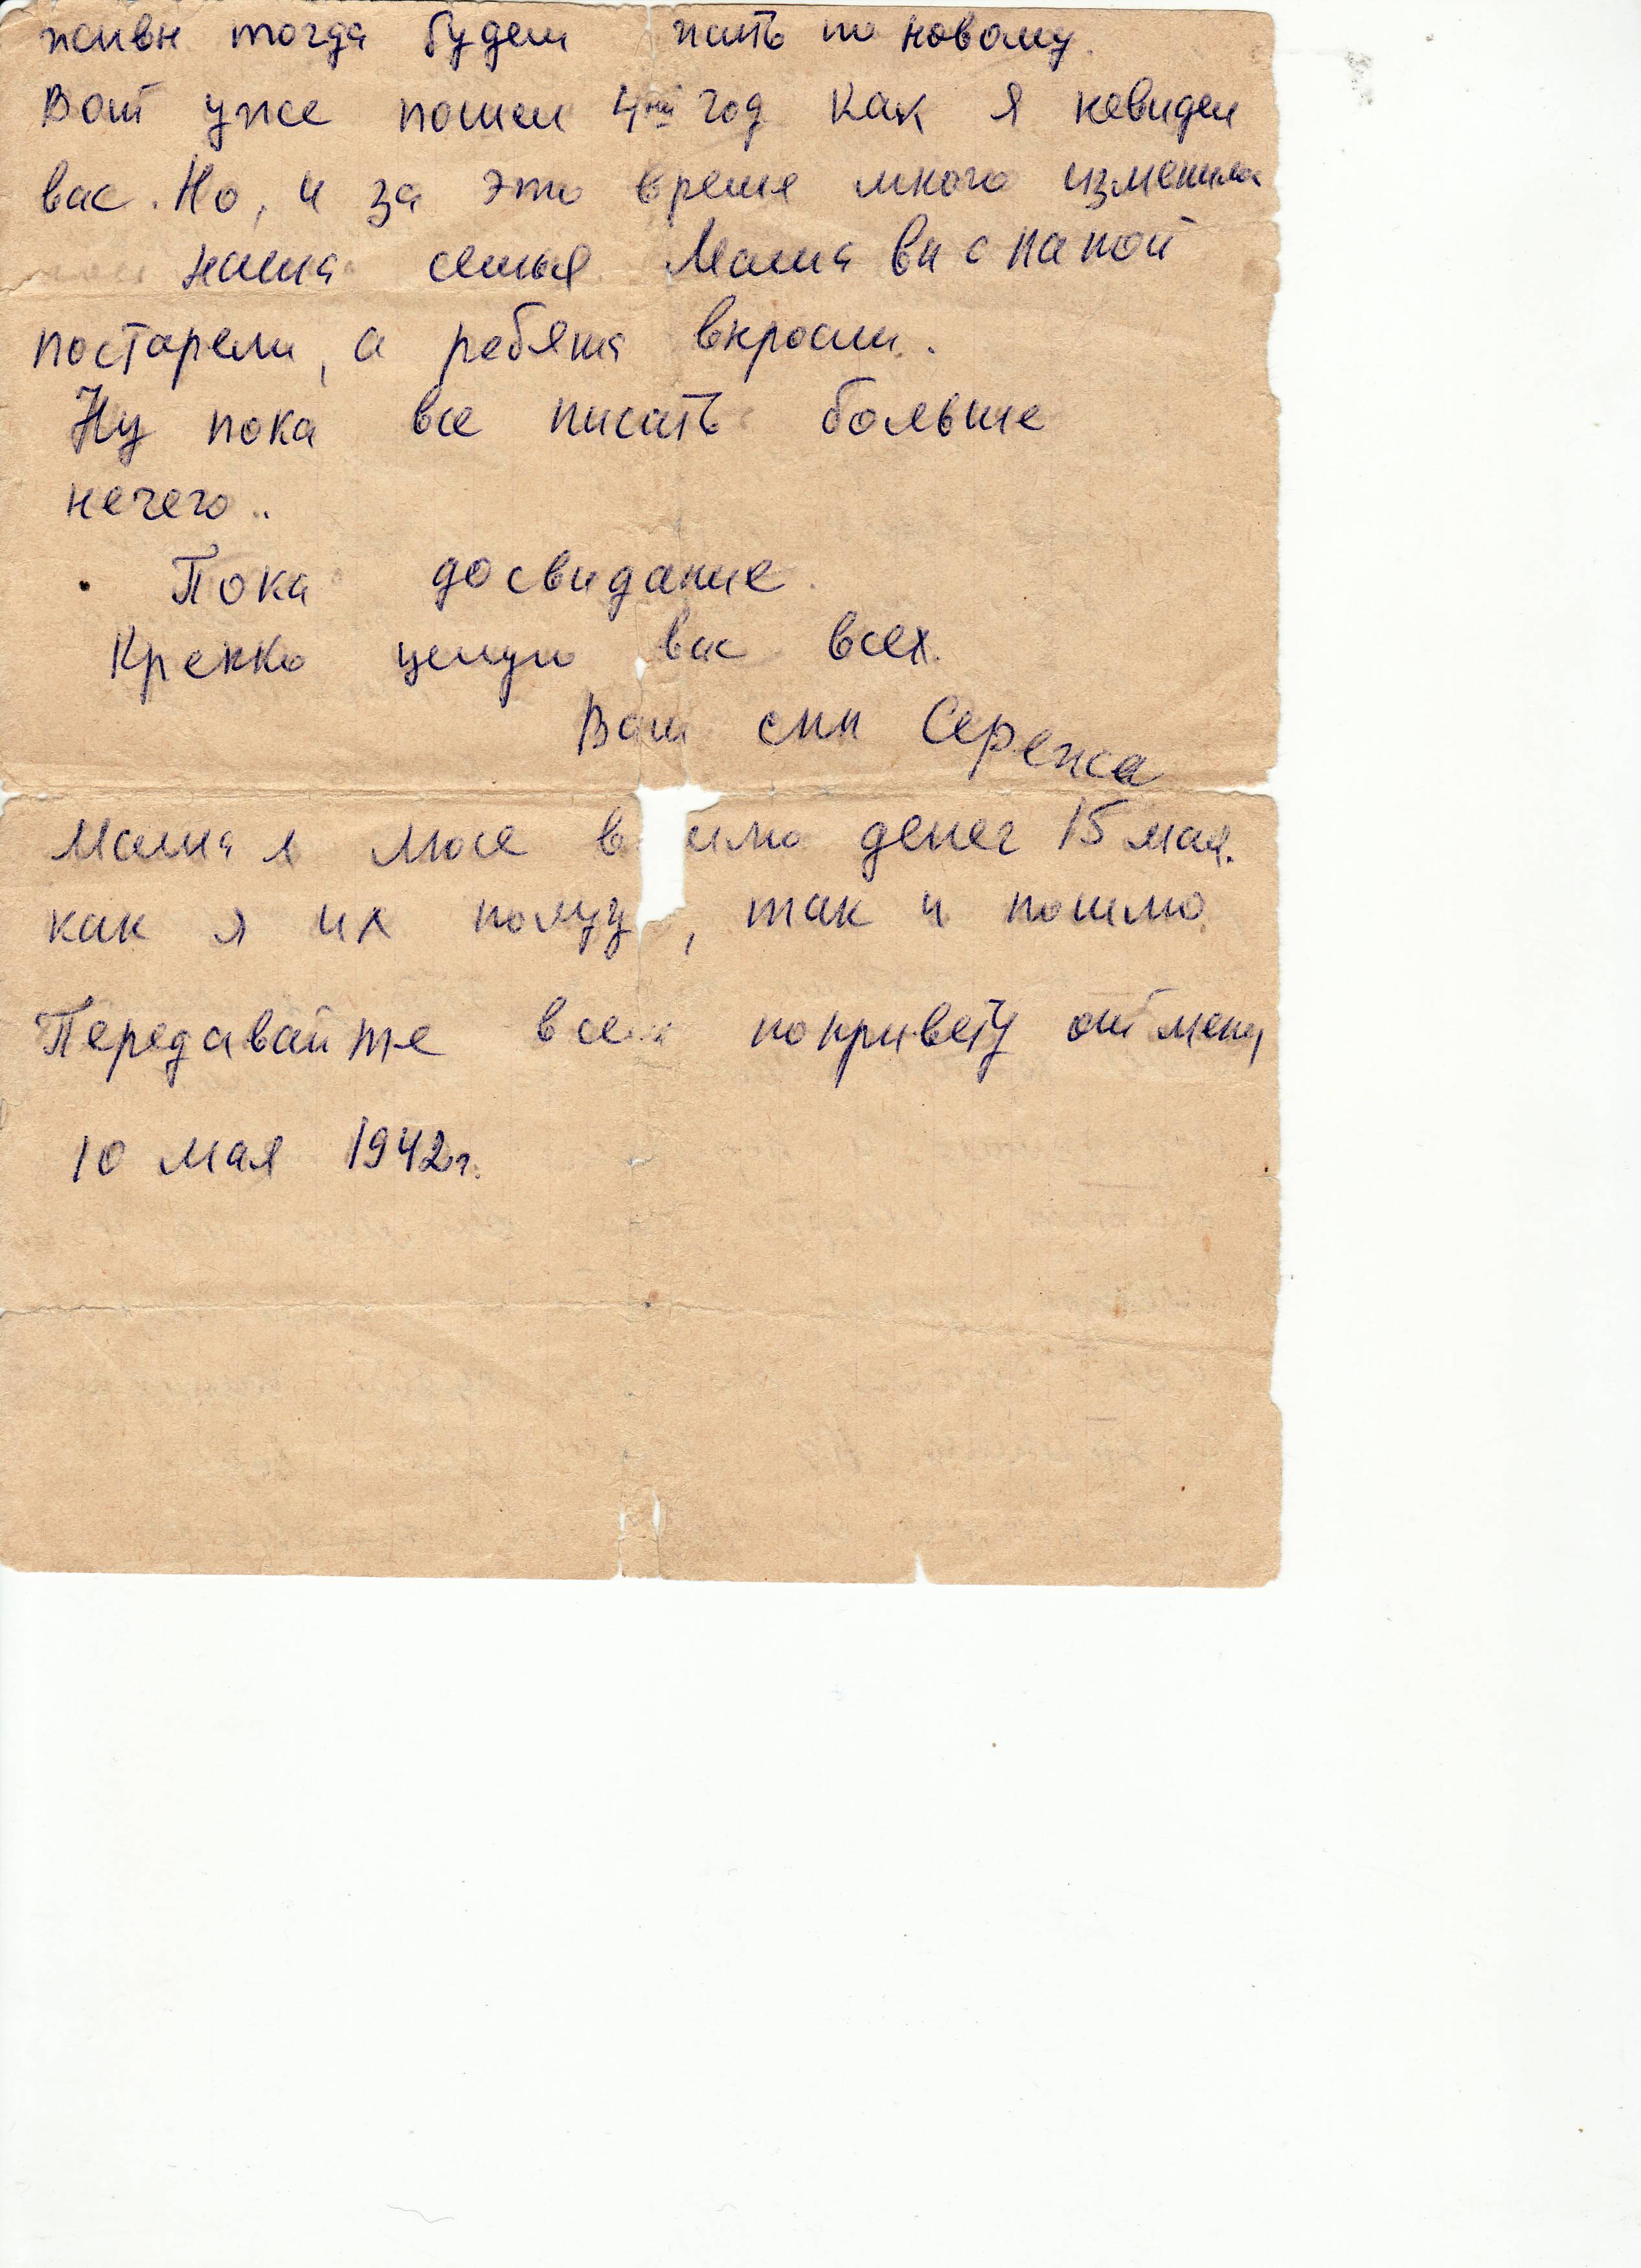 живы тогда будем жить по новому.
Вот уже пошел 4ый год как я невидел
вас. Но, и за это время много изменила
наша семья Мама вы с папой
постарели, а ребята выросли.
Ну пока все писать больше
нечего..
Пока досвидание.
Крепко целую вас всех.
Ваш сын Сережа
Мама я денег 15 мая.
как я их, так и пошлю.
Передавайте всем попривету от меня
10 мая 1942г.